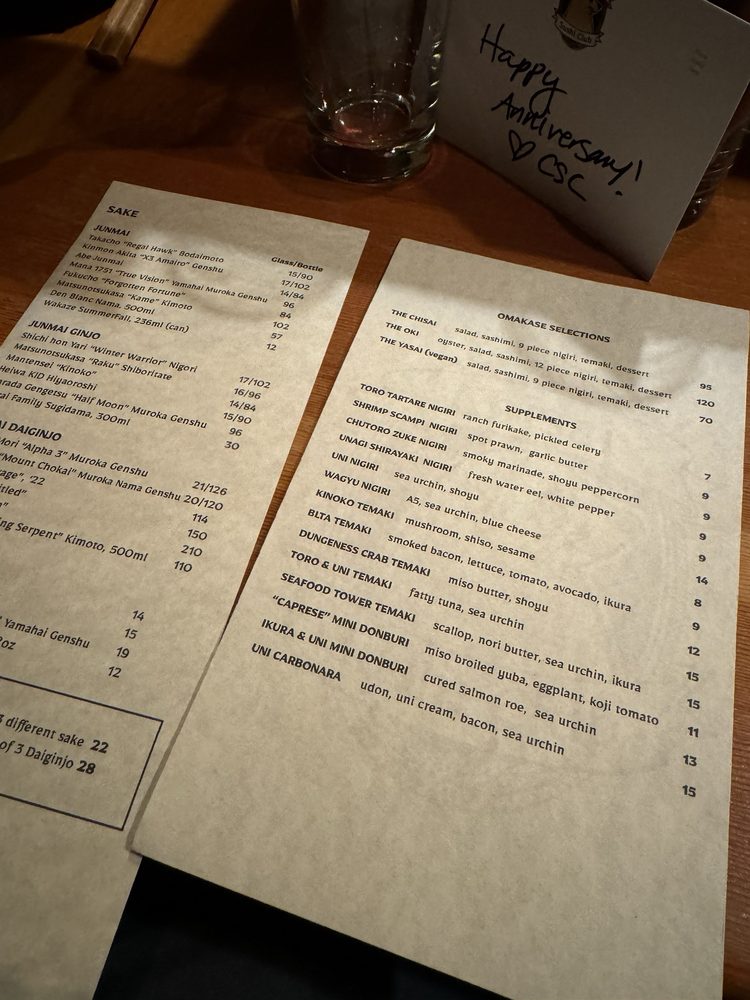 Sushi Club
Happy
Anniversary!
♡ CSC
SAKE
Glass/Bottle
JUNMAI
Takacho "Regal Hawk" Bodaimoto 15/90
Kinmon Akita "X3 Amairo" Genshu 17/102
Abe Junmai 14/84
Mana 1751 "True Vision" Yamahai Muroka Genshu 96
Fukucho "Forgotten Fortune" 84
Matsunotsukasa "Kame" Kimoto 102
Den Blanc Nama, 500ml 57
Wakaze SummerFall, 236ml (can) 12
JUNMAI GINJO
Shichi hon Yari "Winter Warrior" Nigori 17/102
Matsunotsukasa "Raku" Shiboritate 16/96
Mantensei "Kinoko" 14/84
Heiwa KID Hiyaoroshi 15/90
Gengetsu "Half Moon" Muroka Genshu 96
Family Sugidama, 300ml 30
DAIGINJO
Mori "Alpha 3" Muroka Genshu 21/126
"Mount Chokai" Muroka Nama Genshu 20/120
'22 114
150
210
Serpent" Kimoto, 500ml 110
14
15
Yamahai Genshu 19
12
different sake 22
of 3 Daiginjo 28
OMAKASE SELECTIONS
THE CHISAI salad, sashimi, 9 piece nigiri, temaki, dessert 95
THE OKI oyster, salad, sashimi, 12 piece nigiri, temaki, dessert 120
THE YASAI (vegan) salad, sashimi, 9 piece nigiri, temaki, dessert 70
SUPPLEMENTS
TORO TARTARE NIGIRI ranch furikake, pickled celery 7
SHRIMP SCAMPI NIGIRI spot prawn, garlic butter 9
CHUTORO ZUKE NIGIRI smoky marinade, shoyu peppercorn 9
UNAGI SHIRAYAKI NIGIRI fresh water eel, white pepper 9
UNI NIGIRI sea urchin, shoyu 9
WAGYU NIGIRI A5, sea urchin, blue cheese 14
KINOKO TEMAKI mushroom, shiso, sesame 8
BLTA TEMAKI smoked bacon, lettuce, tomato, avocado, ikura 9
DUNGENESS CRAB TEMAKI miso butter, shoyu 12
TORO & UNI TEMAKI fatty tuna, sea urchin 15
SEAFOOD TOWER TEMAKI scallop, nori butter, sea urchin, ikura 15
"CAPRESE" MINI DONBURI miso broiled yuba, eggplant, koji tomato 11
IKURA & UNI MINI DONBURI cured salmon roe, sea urchin 13
UNI CARBONARA udon, uni cream, bacon, sea urchin 15